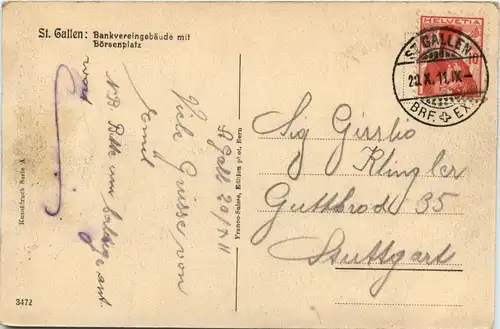 St. Gallen: Bankvereingebäude mit
Börsenplatz
HELVETIA
10
ST. GALLEN
20.X.11.IX-
BRF. EXP.
Sig
Klingler
35
Stuttgart
St Gall 20/X 11
Viele Grüsse von
Emil
NB Bitte um baldige ant.
wort
Franco-Suisse, Edition
Bern
Kunstdruck Serie A
3472